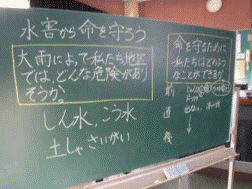 水害から命を守ろう
大雨によって私たち地区
では、どんな危険があり
そうか。
しん水、こう水
土しゃさいがい
命を守るために
私たちはどのよう
なことができるか
前
直
後